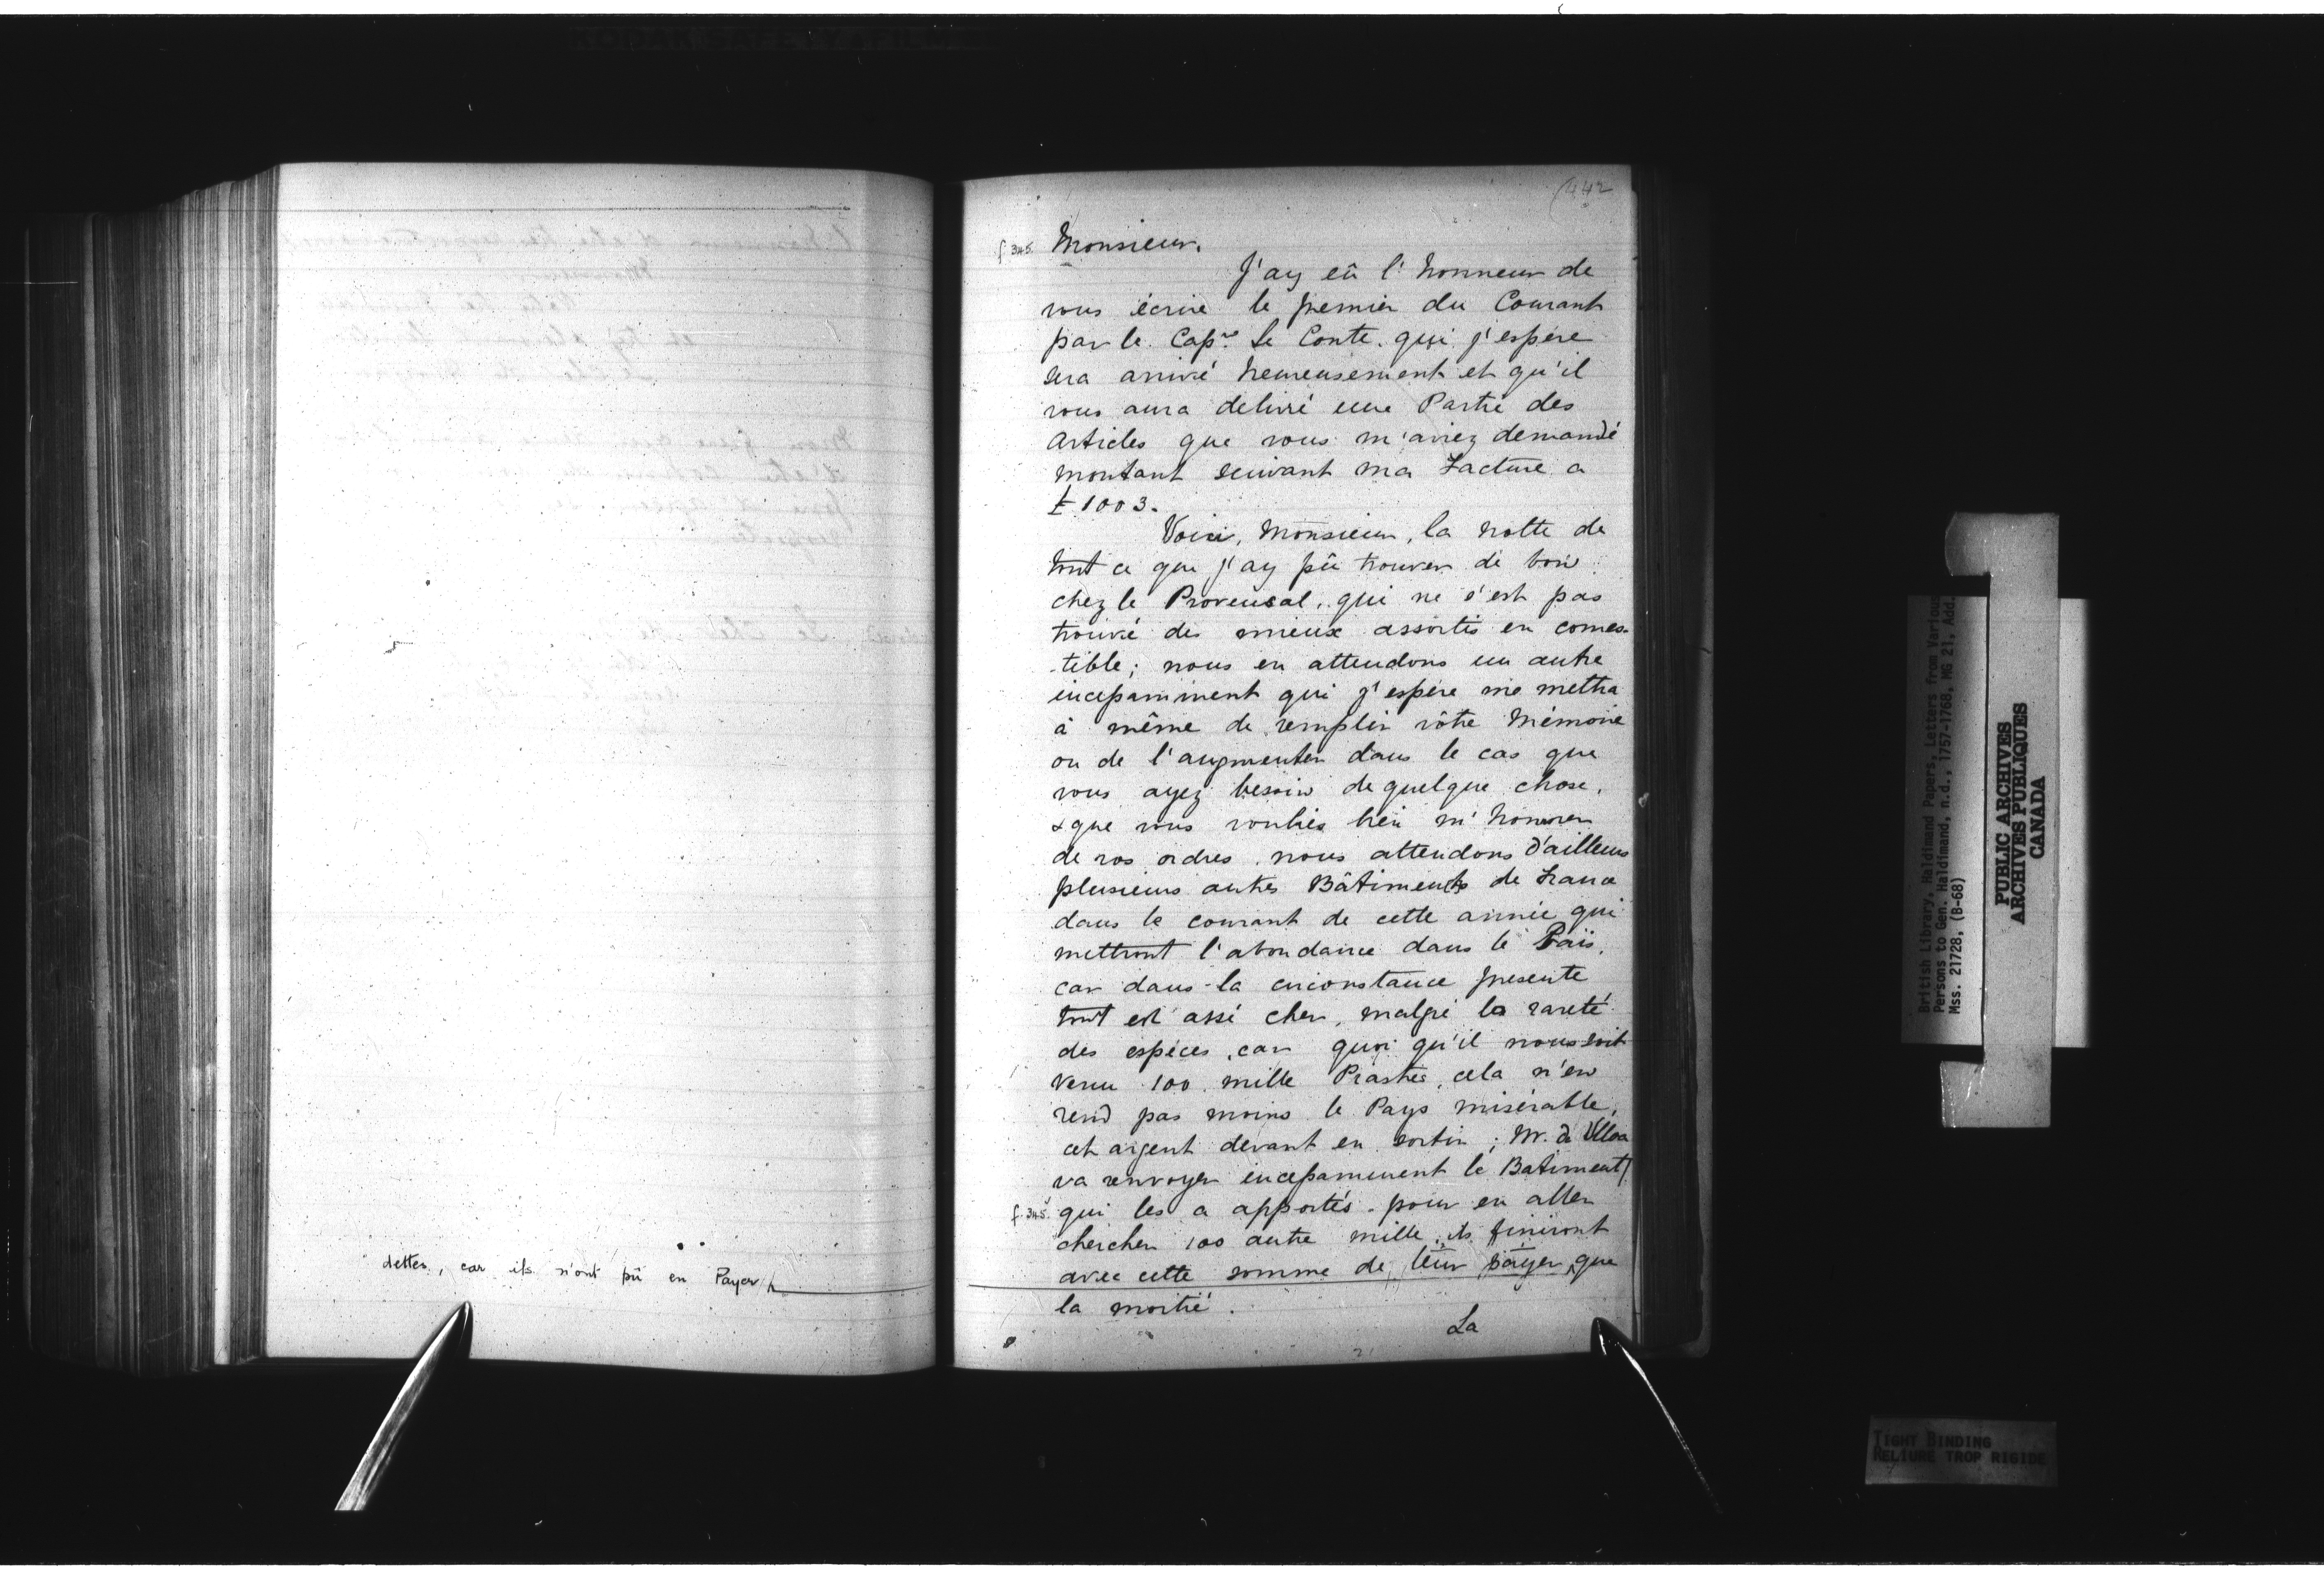 (442
f. 345. Monsieur.
J'ay eû l'honneur de
vous écrire le premier du Courant
par le Cap.ne Le Conte. qui j'espére
sera arrivé heureusement et qu'il
vous aura delivré une Partie des
Articles que vous m'aviez demandé
montant suivant ma Facture a
£ 1003.
Voici, Monsieur, la notte de
tout ce que j'ay pû trouver de bon
chez le Provensal, qui ne s'est pas
trouvé des mieux assortis en comes-
-tible; nous en attendons un autre
incessamment qui j'espére me mettra
à même de remplir vôtre Mémoire
ou de l'augmenter dans le cas que
vous ayez besoin de quelque chose,
& que vous vouliés bien m'honorer
de vos ordres, nous attendons d'ailleurs
plusieurs autres Bâtiments de France
dans le courant de cette année qui
mettront l'abondance dans le Païs,
car dans la circonstance presente
tout est assé cher, malgré la rareté
des espéces, car quoi qu'il nous soit
venu 100 mille Piastres, cela n'en
rend pas moins le Pays misérable,
cet argent devant en sortir; Mr. de Ulloa
va renvoyer incessamment le Batiment
f. 345. qui les a apportés pour en aller
chercher 100 autre mille, ils finiront
avec cette somme de leur payer que
la moitié.
La
dettes, car ils n'ont pû en Payer
British Library, Haldimand Papers, Letters from Various
Persons to Gen. Haldimand, n.d., 1757-1768, MG 21, Add.
Mss. 21728, (B-68)
PUBLIC ARCHIVES
ARCHIVES PUBLIQUES
CANADA
TIGHT BINDING
RELIURE TROP RIGIDE